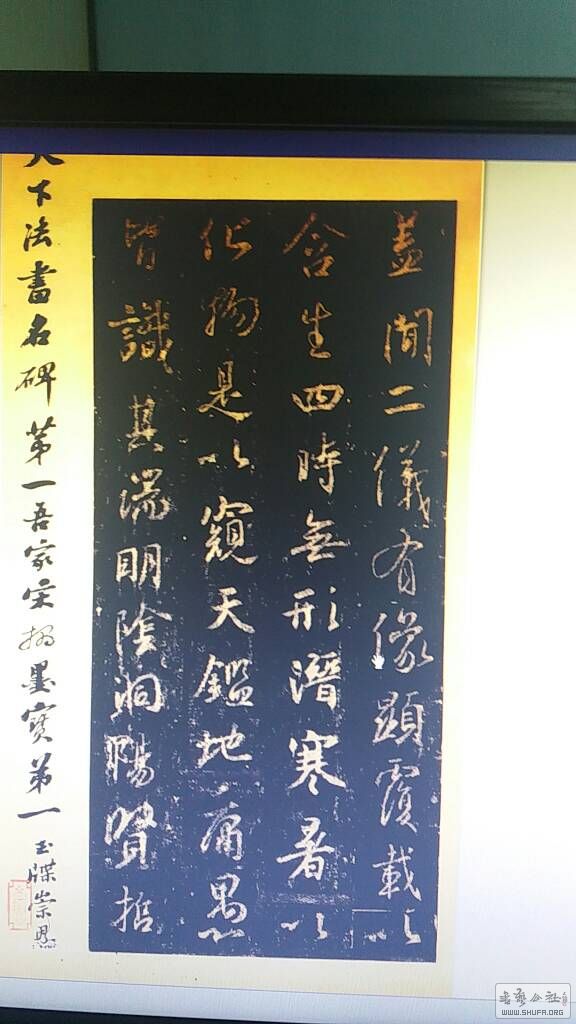 蓋聞二儀有像顯覆載以
含生四時無形潛寒暑以
化物是以窺天鑑地庸愚
皆識其端明陰洞陽賢哲
天下法書名碑第一吾家宋搨墨寶第一
玉牒崇恩
书艺公社
WWW.SHUFA.ORG